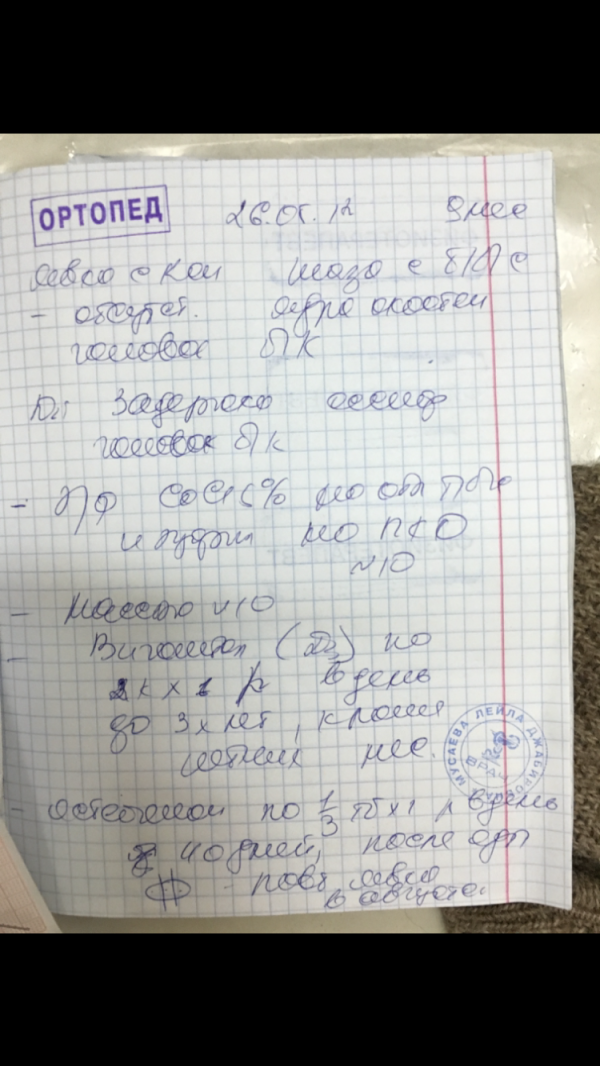 ОРТОПЕД 26.05.12 9 мес
явка с Ren таза с ТБС
- отсутст. ядра окостен
головок БК
Ds: Задержка оссиф
головок БК
- ЭФ CaCl 5% на обл ТБС
и на П К О
N10
- Массаж N10
- Вигантол (D3) по
2к х 1 р в день
до 3х лет, кроме
летних мес.
- Остеогенон по 1/3 тб х 1 р в день
40 дней, после еды
- повт явка
в августе.
МУСАЕВА ЛЕЙЛА ДЖАБИРОВНА
ВРАЧ